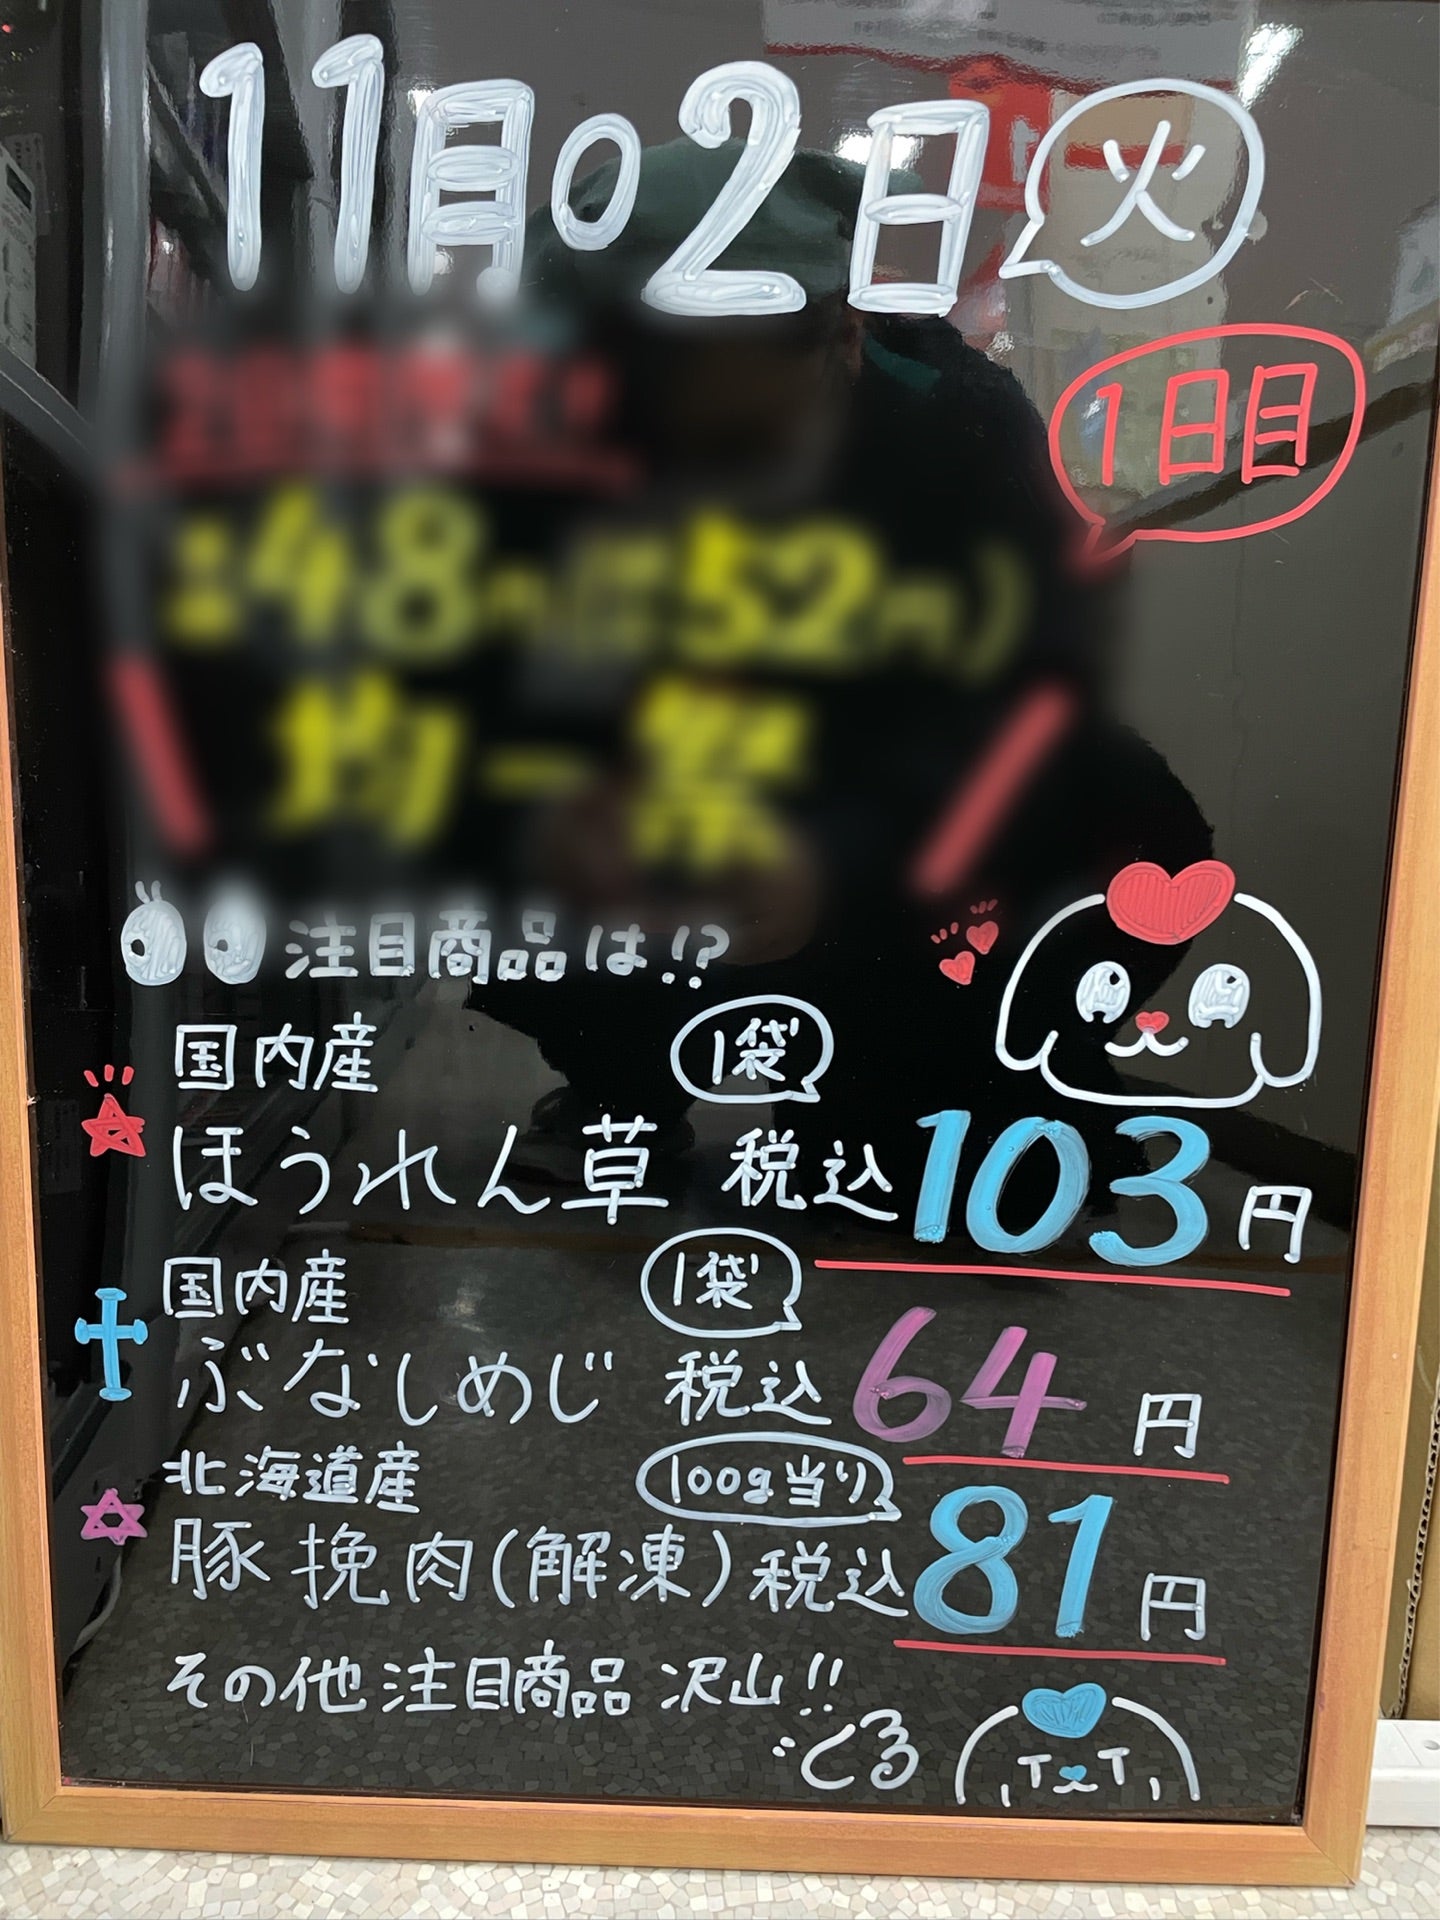 11月02日 火
1日目
注目商品は!?
国内産 1袋
ほうれん草 税込103円
国内産 1袋
ぶなしめじ 税込64円
北海道産 100g当り
豚挽肉(解凍)税込81円
その他注目商品沢山!!